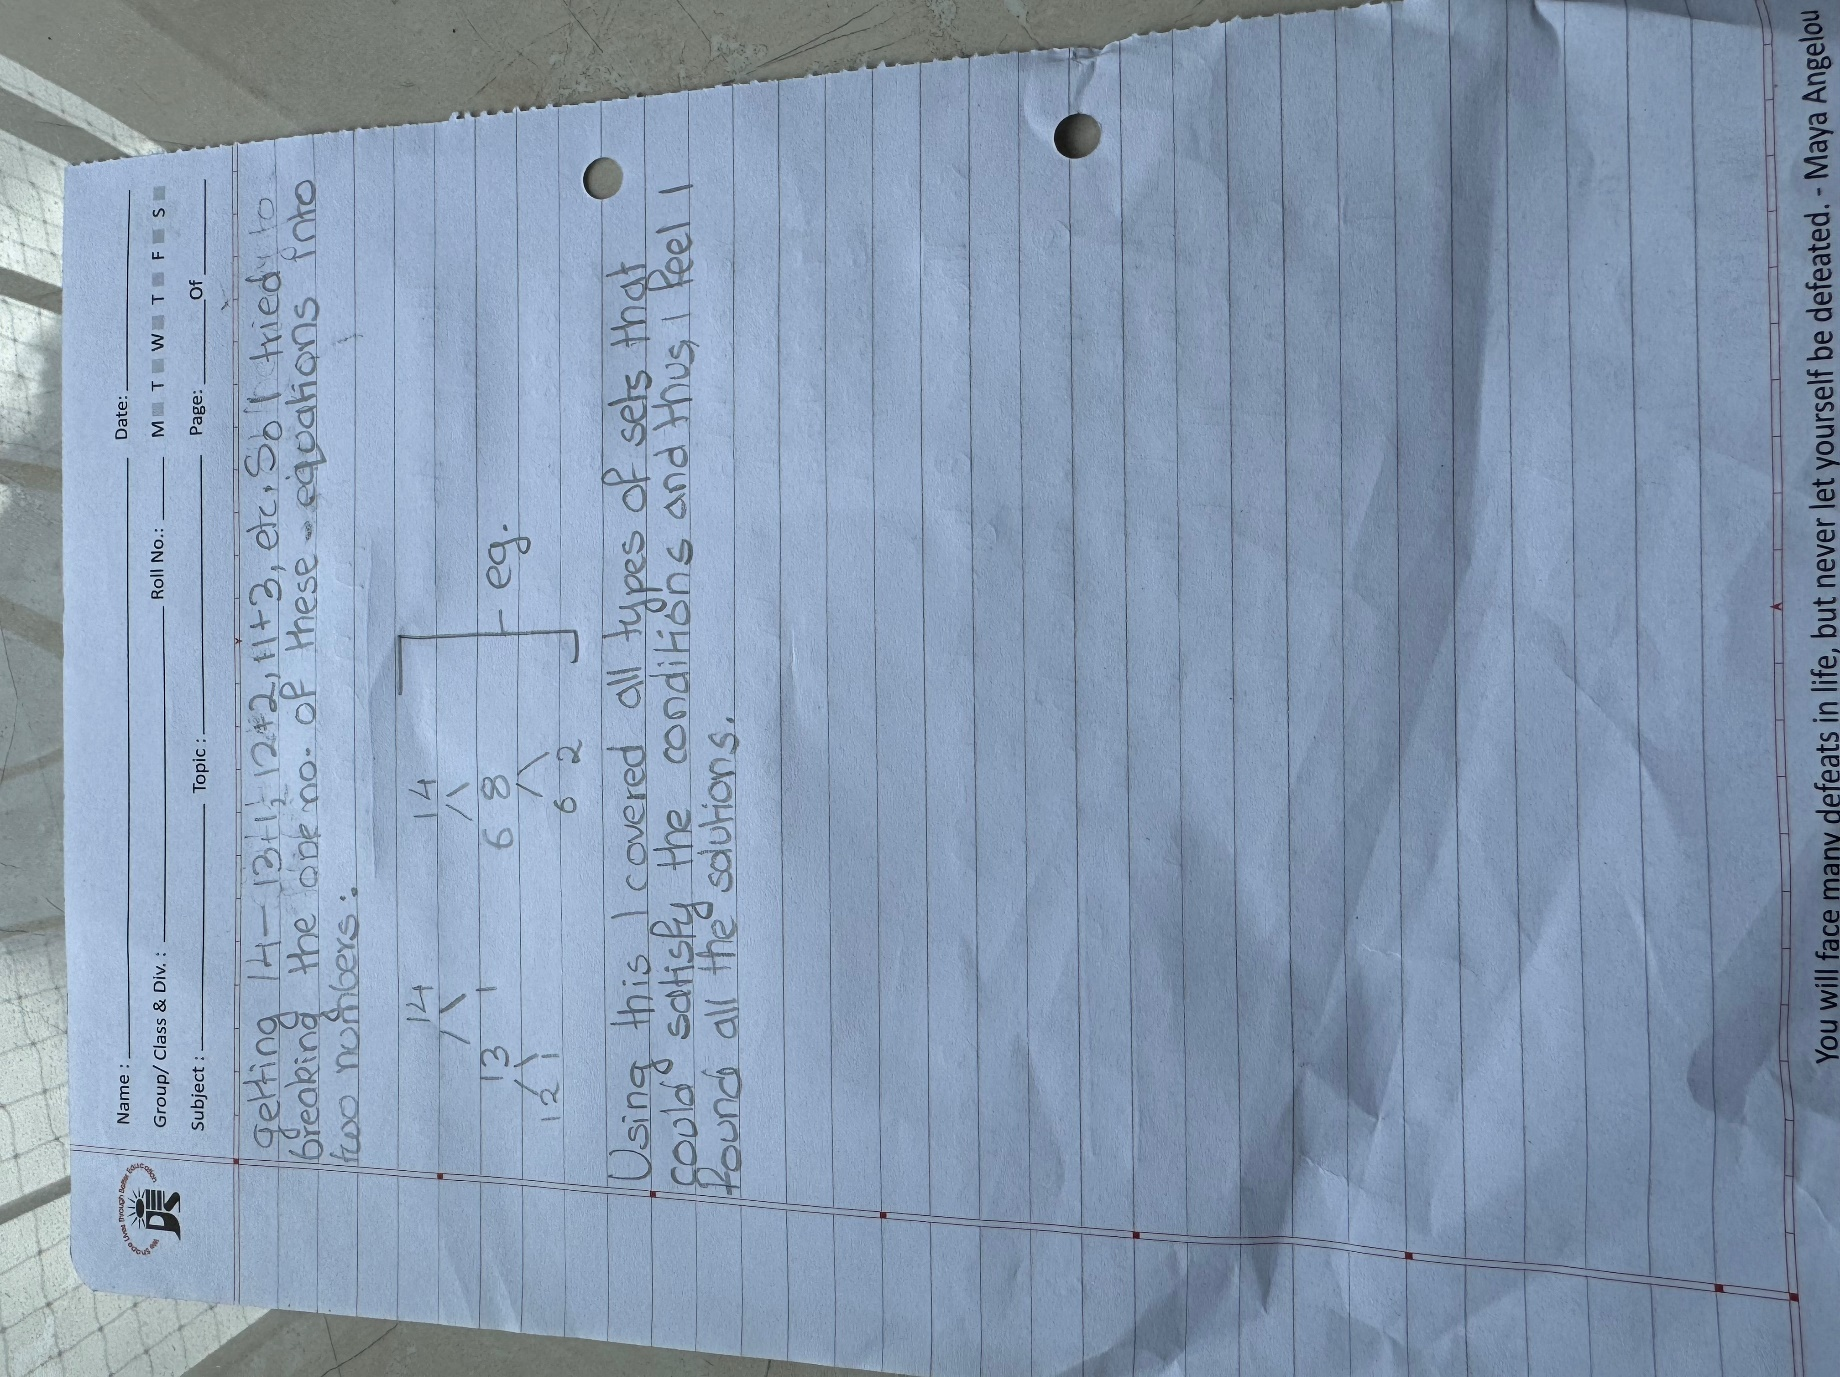 We Shape Lives Through Better Education
Name : Date:
Group/ Class & Div. : Roll No.: M T W T F S
Subject : Topic : Page: Of
getting 14 – 13+1, 12+2, 11+3, etc. So I tried to
breaking the one no. of these equations into
two numbers.
14 14
13 1 6 8 - eg.
12 1 6 2
Using this I covered all types of sets that
could satisfy the conditions and thus, I feel I
found all the solutions.
You will face many defeats in life, but never let yourself be defeated. - Maya Angelou